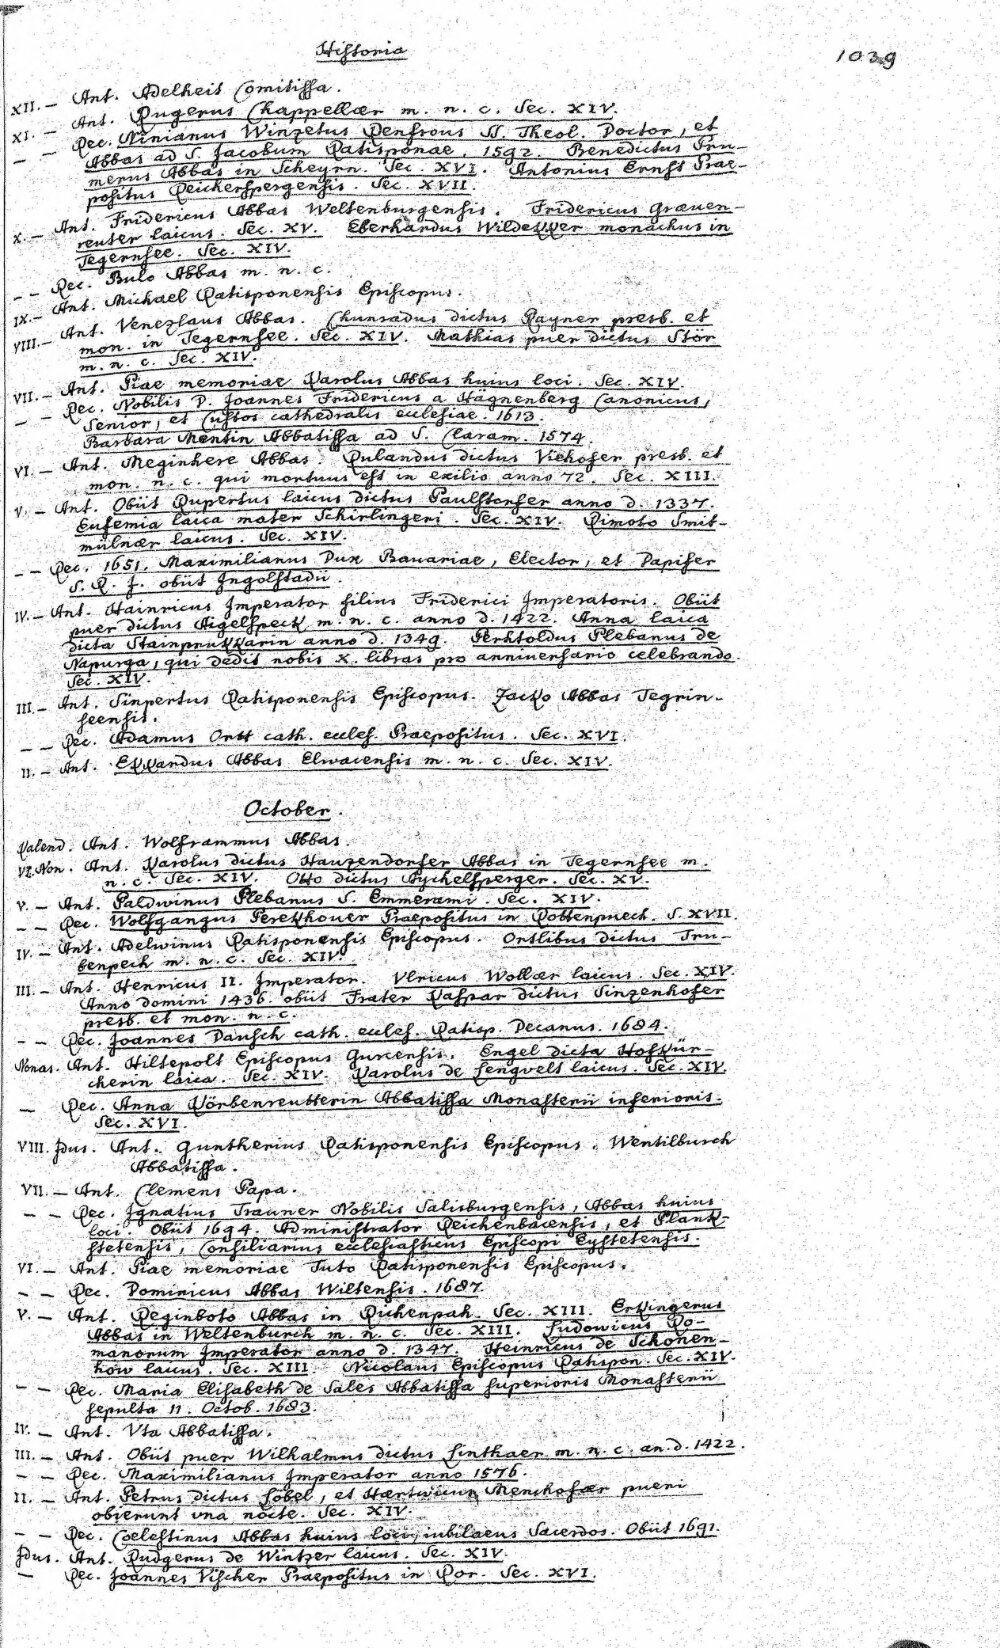 Historia
1039
XII. – Ant. Adelheit Comitissa.
XI. – Ant. Rugerus Chappellær m. n. c. Sec. XIV.
– – Rec. Ninianus Winzetus Renfrous SS. Theol. Doctor, et
Abbas ad S. Jacobum Ratisponae. 1592. Benedictus Pru-
merus Abbas in Scheyrn. Sec. XVI. Antonius Ernst Prae-
positus Reicherspergensis. Sec. XVII.
X. – Ant. Fridericus Abbas Weltenburgensis. Fridericus Græuen-
reuter laicus. Sec. XV. Eberhardus Wildekker monachus in
Tegernsee. Sec. XIV.
– – Rec. Bulo Abbas m. n. c.
IX. – Ant. Michael Ratisponensis Episcopus.
VIII. – Ant. Venezlaus Abbas. Chunradus dictus Rayner presb. et
mon. in Tegernsee. Sec. XIV. Mathias puer dictus Stör
m. n. c. Sec. XIV.
VII. – Ant. Piae memoriae Karolus Abbas huius loci. Sec. XIV.
– Rec. Nobilis D. Joannes Fridericus a Hägnenberg Canonicus,
Senior, et Custos cathedralis ecclesiae. 1613.
Barbara Mentin Abbatissa ad S. Claram. 1574.
VI. – Ant. Meginhere Abbas. Rulandus dictus Viekofer presb. et
mon. n. c. qui mortuus est in exilio anno 72. Sec. XIII.
V. – Ant. Obiit Rupertus laicus dictus Paulstorfer anno d. 1337.
Eufemia laica mater Schirlingeri. Sec. XIV. Rimoto Smit-
mülnær laicus. Sec. XIV.
– – Rec. 1651. Maximilianus Dux Bauariae, Elector, et Dapifer
S. R. J. obiit Ingolstadii.
IV. – Ant. Hainricus Imperator filius Friderici Imperatoris. Obiit
puer dictus Aigelspeck m. n. c. anno d. 1422. Anna laica
dicta Stainprukkarin anno d. 1349. Perhtoldus Plebanus de
Napurga, qui dedit nobis X. libras pro anniuersario celebrando.
Sec. XIV.
III. – Ant. Sinpertus Ratisponensis Episcopus. Zacko Abbas Tegrin-
seensis.
– – Rec. Adamus Ortt cath. eccles. Praepositus. Sec. XVI.
II. – Ant. Ekkardus Abbas Elwacensis m. n. c. Sec. XIV.
October.
Kalend. Ant. Wolframmus Abbas.
VI. Non. Ant. Karolus dictus Hauzendorfer Abbas in Tegernsee m.
n. c. Sec. XIV. Otto dictus Aychelsperger. Sec. XV.
V. – Ant. Paldwinus Plebanus S. Emmerami. Sec. XIV.
– – Rec. Wolfgangus Perekhouer Praepositus in Rottenpuech. S. XVII.
IV. – Ant. Adelwinus Ratisponensis Episcopus. Ortlibus dictus Tru-
benpech m. n. c. Sec. XIV.
III. – Ant. Henricus II. Imperator. Vlricus Wollær laicus. Sec. XIV.
Anno domini 1436. obiit Frater Kaspar dictus Sinzenhofer
presb. et mon. n. c.
– – Rec. Joannes Dausch cath. eccles. Ratisp. Decanus. 1684.
Nonas. Ant. Hiltepolt Episcopus Gurcensis. Engel dicta Hofkür-
cherin laica. Sec. XIV. Karolus de Lengvelt laicus. Sec. XIV.
– Rec. Anna Körbenreutterin Abbatissa Monasterii inferioris.
Sec. XVI.
VIII. Jdus. Ant. Guntherius Ratisponensis Episcopus. Wentilburch
Abbatissa.
VII. – Ant. Clemens Papa.
– – Rec. Ignatius Trauner Nobilis Salisburgensis, Abbas huius
loci. Obiit 1694. Administrator Reichenbacensis, et Plank-
stetensis, Consiliarius ecclesiasticus Episcopi Eystetensis.
VI. – Ant. Piae memoriae Tuto Ratisponensis Episcopus.
– – Rec. Dominicus Abbas Wiltensis. 1687.
V. – Ant. Reginboto Abbas in Richenpah. Sec. XIII. Erkingerus
Abbas in Weltenburch m. n. c. Sec. XIII. Ludowicus Ro-
manorum Imperator anno d. 1347. Heinricus de Schonen-
how laicus. Sec. XIII. Nicolaus Episcopus Ratispon. Sec. XIV.
– – Rec. Maria Elisabeth de Sales Abbatissa superioris Monasterii
sepulta 11. Octob. 1683.
IV. – Ant. Vta Abbatissa.
III. – Ant. Obiit puer Wilhalmus dictus Linthaer m. n. c. an. d. 1422.
– – Rec. Maximilianus Imperator anno 1576.
II. – Ant. Petrus dictus Lobel, et Hærtwicus Menckofær pueri
obierunt vna nocte. Sec. XIV.
– – Rec. Coelestinus Abbas huius loci, iubilaeus Sacerdos. Obiit 1691.
Jdus. Ant. Rudgerus de Wintzer laicus. Sec. XIV.
– Rec. Joannes Vischer Praepositus in Ror. Sec. XVI.